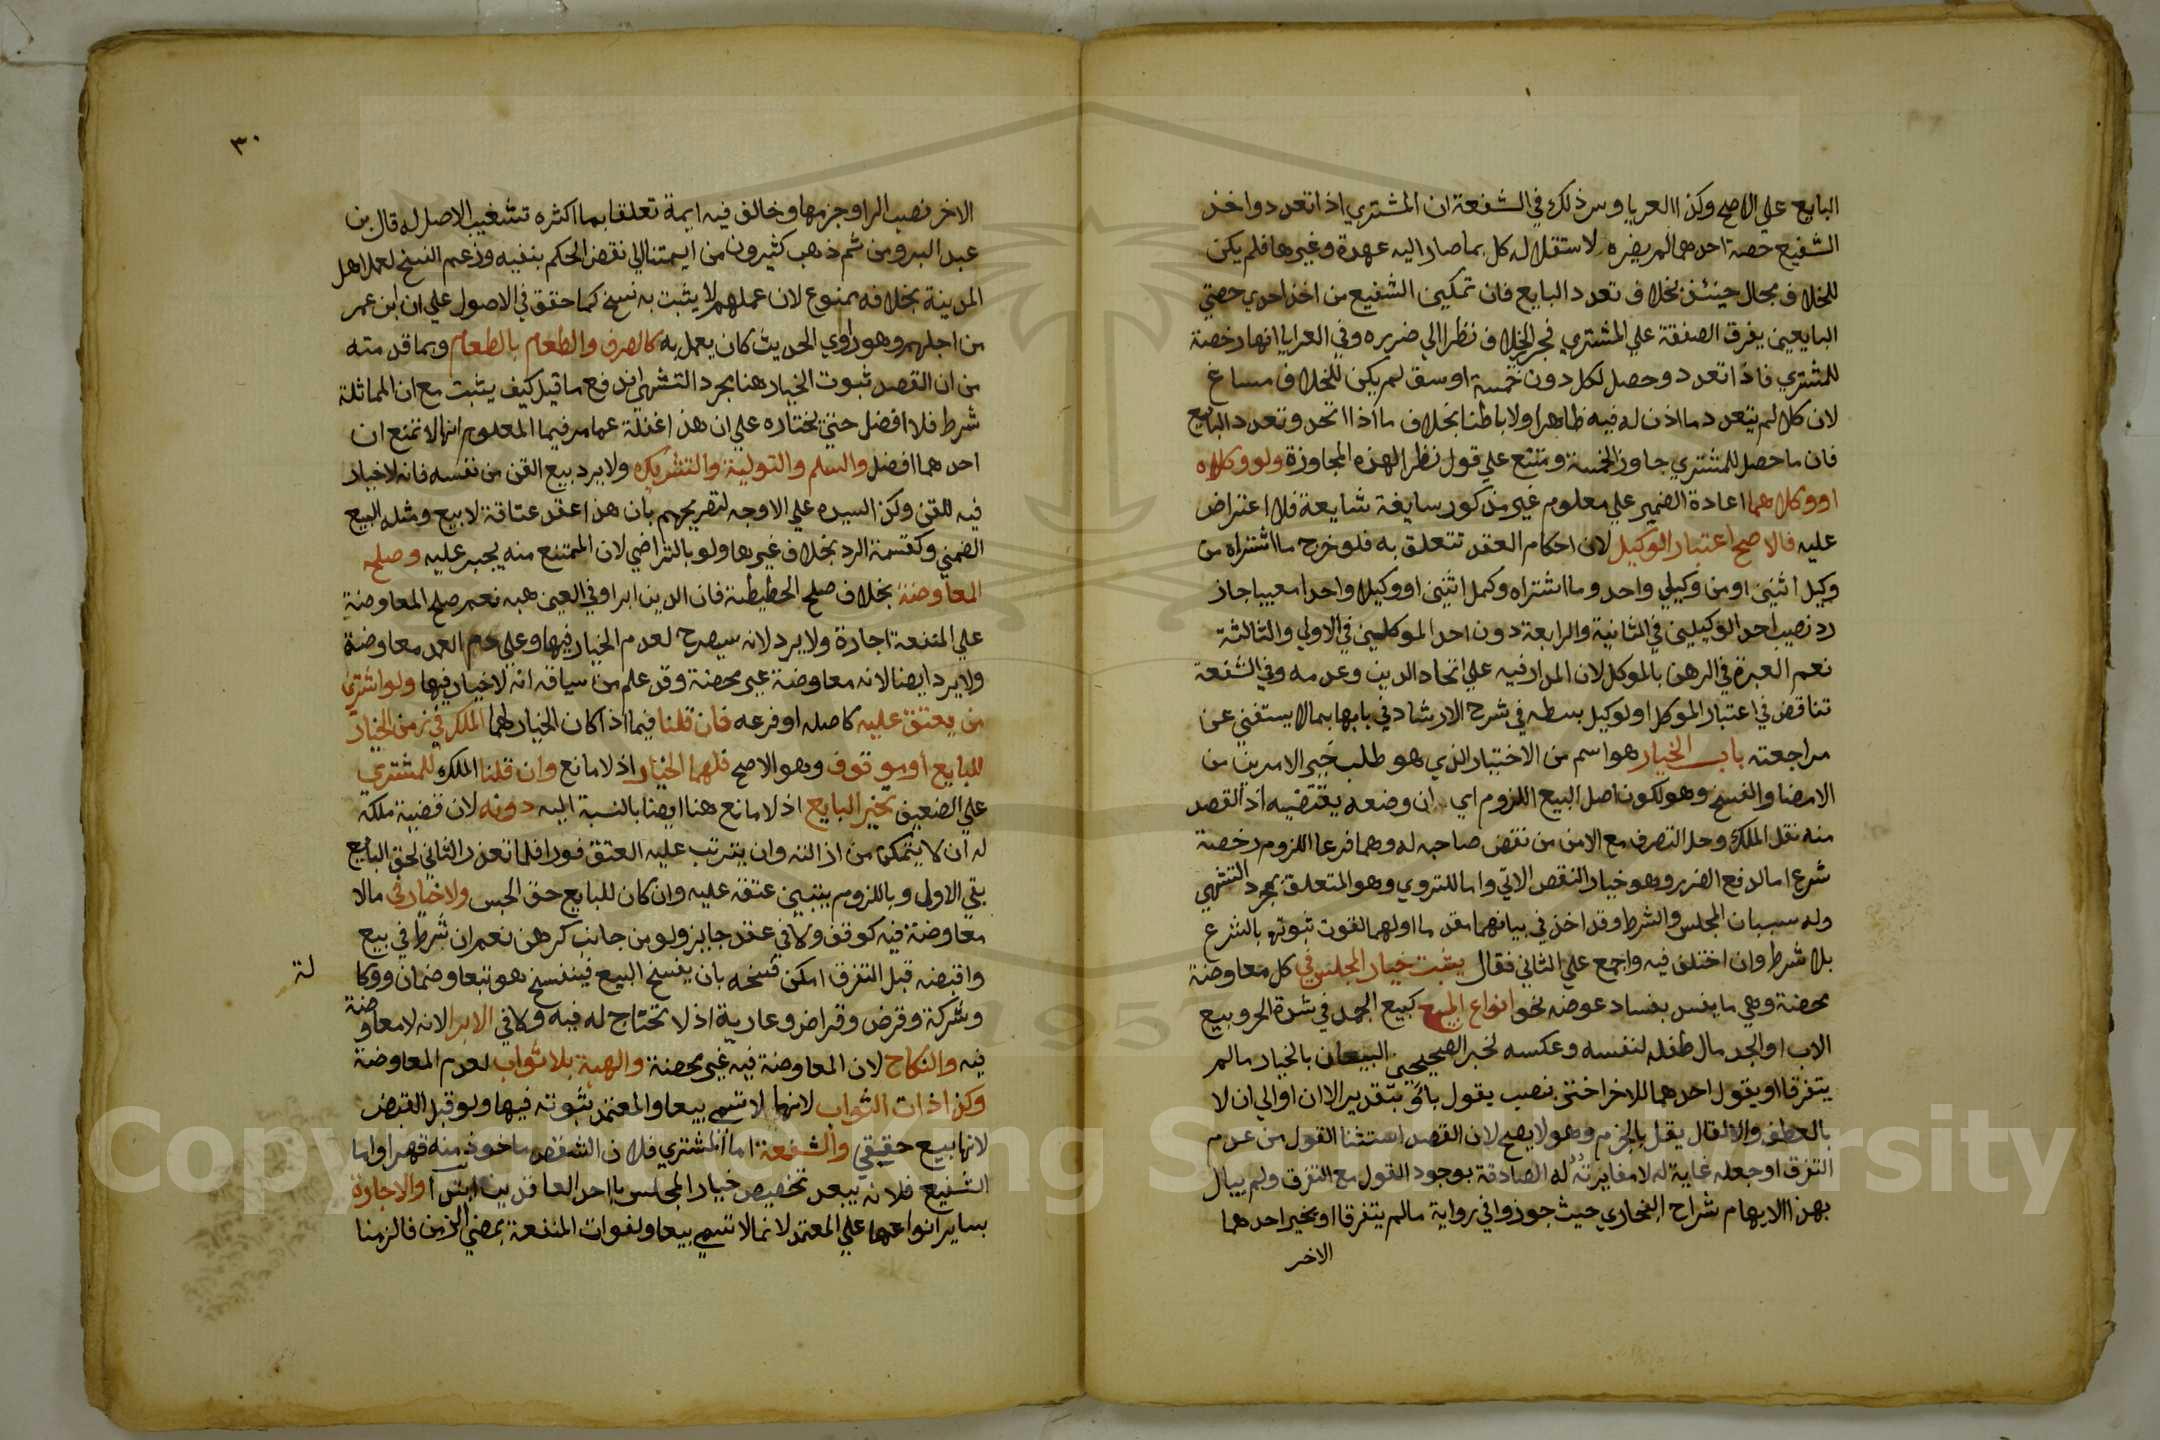 البايع علي الاصح وكذا العرايا وسر ذلك في الشفعة ان المشتري اذا تعدد واخذ
الشفيع حصة احدهما لم يضره لاستقلال كل بما صار اليه عهدة وغيرها فلم يكن
للخلاف مجال حينئذ بخلاف تعدد البايع فان تمكين الشفيع من اخذ احدي حصتي
البايعين يفرق الصفقة علي المشتري فجر الخلاف نظرا الي ضرره وفي العرايا انها رخصة
للمشتري فاذا تعدد وحصل لكل دون خمسة اوسق لم يكن للخلاف مساغ
لان كلا لم يتعد ما اذن له فيه ظاهرا ولا باطنا بخلاف ما اذا اتحد وتعدد البايع
فان ما حصل للمشتري جاوز الخمسة وممتنع علي قول نظرا لهذه المجاوزة ولو وكلاه
او وكلاهما اعادة الضمير علي معلوم غير مذكور سايغة شايعة فلا اعتراض
عليه فالاصح اعتبار الوكيل لان احكام العقد تتعلق به فلو خرج ما اشتراه من
وكيل اثنين او من وكيلي واحد وما اشتراه وكيل اثنين او وكيلا واحد معيبا جاز
رد نصيب احد الوكيلين في الثانية والرابعة دون احد الموكلين في الاولي والثالثة
نعم العبرة في الرهن بالموكل لان المدار فيه علي اتحاد الدين وعدمه وفي الشفعة
تناقض في اعتبار الموكل او لوكيل بسطه في شرح الارشاد في بابها بما لا يستغني عن
مراجعته باب الخيار هو اسم من الاختيار الذي هو طلب خير الامرين من
الامضا والفسخ وهو لكون اصل البيع اللزوم اي ان وضعه يقتضيه اذ القصد
منه نقل الملك وحل التصرف مع الامن من نقض صاحبه له وهما فرعا اللزوم رخصة
شرع اما لدفع الضرر وهو خيار النقص الاتي واما للتروي وهو المتعلق بمجرد التشهي
وله سببان المجلس والشرط وقد اخذ في بيانهما مقدما اولهما لقوت ثبوته بالشرع
بلا شرط وان اختلف فيه واجمع علي الثاني فقال يثبت خيار المجلس في كل معاوضة
محضة وهي ما يفسد بفساد عوضه نحو انواع البيع كبيع الجمد في شدة الحر وبيع
الاب او الجد مال طفله لنفسه وعكسه لخبر الصحيحين البيعان بالخيار ما لم
يتفرقا او يقول احدهما للاخر اختر بنصب يقول باو بتقدير الا ان او الي ان لا
بالعطف والا لقال يقل بالجزم وهو لا يصح لان القصد استثنا القول من عدم
التفرق او جعله غاية له لا مغايرته له الصادقة بوجود القول مع التفرق ولم يبال
بهذا الايهام شراح البخاري حيث جوزوا في رواية ما لم يتفرقا او يخير احدهما
الاخر
٣٠
الاخر نصب الرا وجزمها وخالف فيه ايمة تعلقا بما اكثره تشغيب لا اصل له قال بن
عبد البر ومن ثم ذهب كثيرون من ايمتنا الي نقض الحكم بنفيه وزعم النسخ لعمل اهل
المدينة بخلافه ممنوع لان عملهم لا يثبت به نسخ كما حقق في الاصول علي ان ابن عمر
من اجلهم وهو راوي الحديث كان يعمل به كالصرف والطعام بالطعام وبما قدمته
من ان القصد ثبوت الخيار هنا بمجرد التشهي اندفع ما قيل كيف يثبت مع ان المماثلة
شرط فلا افضل حتي يختاره علي ان هذا غفلة عما مر فيما المعلوم انها لا تمنع ان
احدهما افضل والسلم والتولية والتشريك ولا يرد بيع القن من نفسه فانه لا خيار
فيه للقن وكذا لسيده علي الاوجه لتصريحهم بان هذا عقد عتاقة لا بيع ومثله البيع
الضمني وكقسمة الرد بخلاف غيرها ولو بالتراضي لان الممتنع منه يجبر عليه وصلح
المعاوضة بخلاف صلح الحطيطة فان الدين ابرا وفي العين هبه نعم صلح المعاوضة
علي المنفعة اجارة ولا يرد لانه سيصرح لعدم الخيار فيها وعلي دم العمد معاوضة
ولا يرد ايضا لانه معاوضة غير محضة وقد علم من سياقه انه لا خيار فيها ولو اشتري
من يعتق عليه كاصله او فرعه فان قلنا فيما اذا كان الخيار لهما الملك في زمن الخيار
للبايع او موقوف وهو الاصح فلهما الخيار اذ لا مانع وان قلنا الملك للمشتري
علي الضعيف تخير البايع اذ لا مانع هنا ايضا بالنسبة اليه دونه لان قضية ملكه
له ان لا يتمكن من ازالته وان يترتب عليه العتق فورا فلما تعذر الثاني لحق البايع
بقي الاول وباللزوم يتبين عتقه عليه وان كان للبايع حق الحبس ولا خيار في ما لا
معاوضة فيه كوقف ولا في عقد جايز ولو من جانب كرهن نعم ان شرط في بيع
واقبضه قبل التفرق امكن فسخه بان يفسخ البيع فينفسخ هو تبعا وضمان ووكا
لة
وشركة وقرض وقراض وعارية اذ لا تحتاج له فيه ولا في الابرا لانه لا معاوضة
فيه والنكاح لان المعاوضة فيه غير محضة والهبة بلا ثواب لعدم المعاوضة
وكذا ذات الثواب لانها لا تسمي بيعا والمعتمد ثبوته فيها ولو قبل القبض
لانها بيع حقيقي والشفعة اما المشتري فلان الشقص ماخوذ منه قهرا واما
الشفيع فلانه يبعد تخصيص خيار المجلس باحد العاقدين ابتدا والاجارة
بساير انواعها علي المعتمد لانها لا تسمي بيعا ولفوات المنفعة بمضي الزمن فالزمنا
Copyright © King Saud University
1957